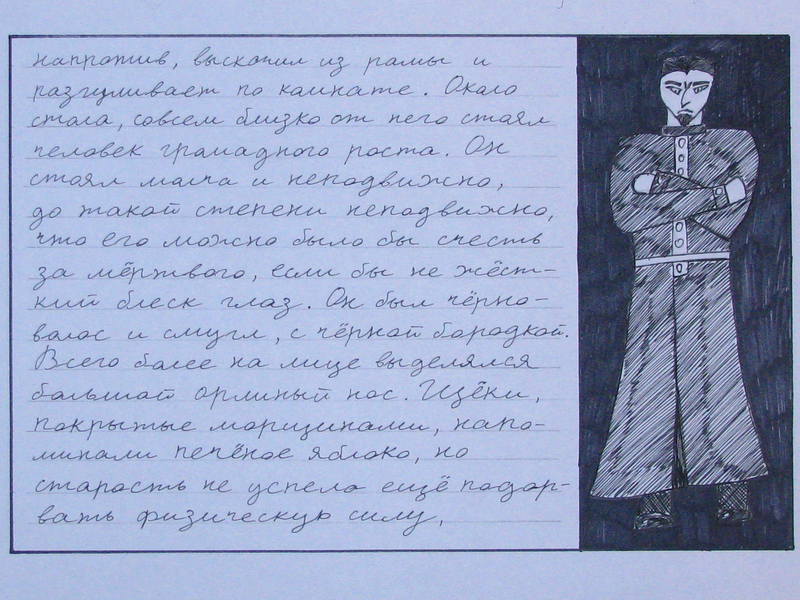 напротив, выскочил из рамы и
разгуливает по комнате. Около
стола, совсем близко от него стоял
человек громадного роста. Он
стоял молча и неподвижно,
до такой степени неподвижно,
что его можно было бы счесть
за мёртвого, если бы не жёст-
кий блеск глаз. Он был черно-
волос и смугл, с чёрной бородкой.
Всего более на лице выделялся
большой орлиный нос. Щёки,
покрытые морщинами, напо-
минали печёное яблоко, но
старость не успела ещё подор-
вать физическую силу,